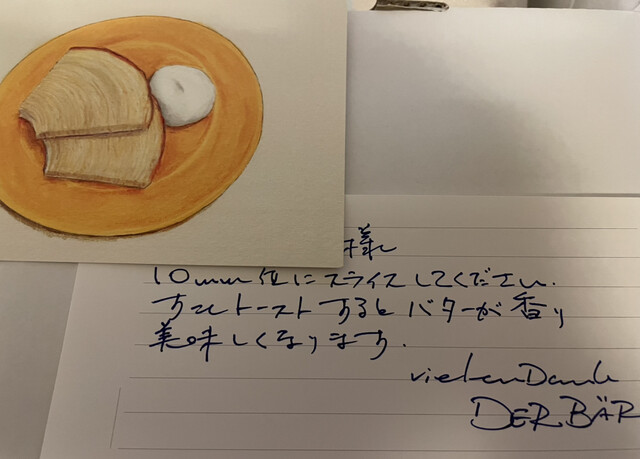 様
10mm位にスライスしてください.
少しトーストするとバターが香り
美味しくなります.
vielen Dank
DER BÄR